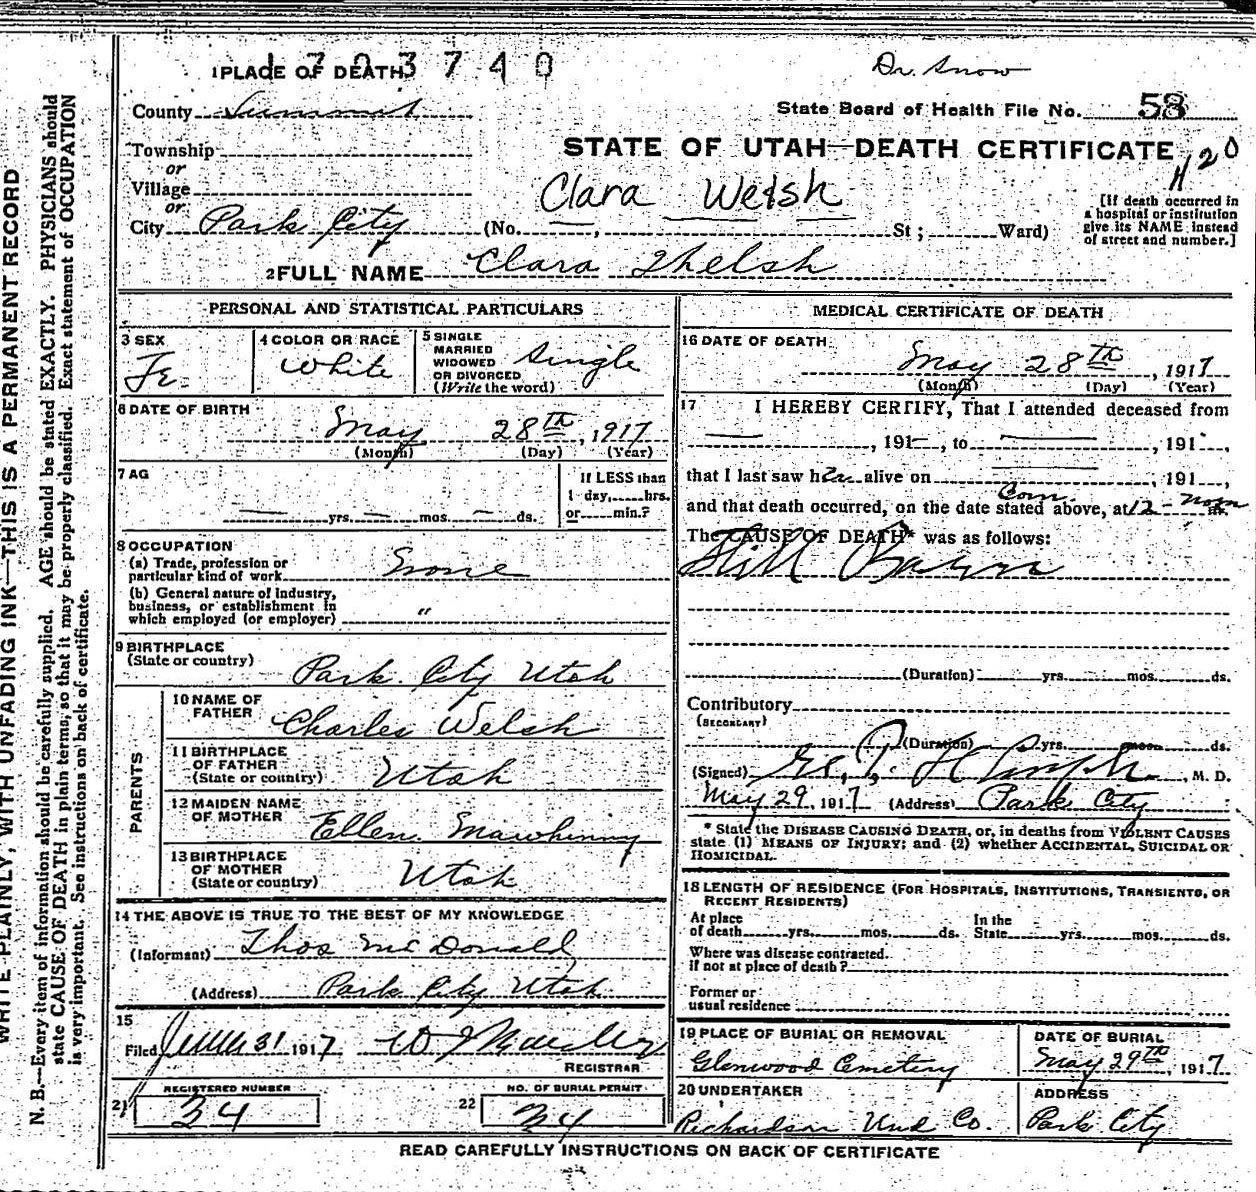 1703740
1 PLACE OF DEATH
Dr. Snow
County Summit
State Board of Health File No. 58
Township
or
Village
or
STATE OF UTAH—DEATH CERTIFICATE
120
Clara Welsh
City Park City (No. —, St ; Ward)
[If death occurred in
a hospital or institution
give its NAME instead
of street and number.]
2 FULL NAME Clara Welsh
PERSONAL AND STATISTICAL PARTICULARS
3 SEX
Fe
4 COLOR OR RACE
White
5 SINGLE
MARRIED
WIDOWED
OR DIVORCED
(Write the word)
Single
6 DATE OF BIRTH
May 28th, 1917
(Month) (Day) (Year)
7 AG
— yrs. — mos. — ds.
If LESS than
1 day, hrs.
or min.?
8 OCCUPATION
(a) Trade, profession or
particular kind of work None
(b) General nature of industry,
business, or establishment in
which employed (or employer) "
9 BIRTHPLACE
(State or country)
Park City Utah
PARENTS
10 NAME OF
FATHER
Charles Welsh
11 BIRTHPLACE
OF FATHER
(State or country)
Utah
12 MAIDEN NAME
OF MOTHER
Ellen Mawhinny
13 BIRTHPLACE
OF MOTHER
(State or country)
Utah
14 THE ABOVE IS TRUE TO THE BEST OF MY KNOWLEDGE
(Informant) Thos McDonald
(Address) Park City Utah
15
Filed 31 1917
REGISTRAR
REGISTERED NUMBER
21 34
NO. OF BURIAL PERMIT
22 34
MEDICAL CERTIFICATE OF DEATH
16 DATE OF DEATH
May 28th, 1917
(Month) (Day) (Year)
17 I HEREBY CERTIFY, That I attended deceased from
—, 191—, to —, 191
that I last saw h alive on —, 191
and that death occurred, on the date stated above, at 12 noon m.
The CAUSE OF DEATH* was as follows:
Still Born
(Duration) yrs. mos. ds.
Contributory
(SECONDARY)
(Duration) yrs. mos. ds.
(Signed) , M. D.
May 29, 1917 (Address) Park City
* State the DISEASE CAUSING DEATH, or, in deaths from VIOLENT CAUSES
state (1) MEANS OF INJURY; and (2) whether ACCIDENTAL, SUICIDAL OR
HOMICIDAL.
18 LENGTH OF RESIDENCE (FOR HOSPITALS, INSTITUTIONS, TRANSIENTS, OR
RECENT RESIDENTS)
At place
of death yrs. mos. ds. In the
State yrs. mos. ds.
Where was disease contracted.
if not at place of death?
Former or
usual residence
19 PLACE OF BURIAL OR REMOVAL
Glenwood Cemetery
DATE OF BURIAL
May 29th, 1917
20 UNDERTAKER
Richardson Und Co.
ADDRESS
Park City
READ CAREFULLY INSTRUCTIONS ON BACK OF CERTIFICATE
WRITE PLAINLY, WITH UNFADING INK—THIS IS A PERMANENT RECORD
N. B.—Every item of information should be carefully supplied. AGE should be stated EXACTLY. PHYSICIANS should
state CAUSE OF DEATH in plain terms, so that it may be properly classified. Exact statement of OCCUPATION
is very important. See instructions on back of certificate.